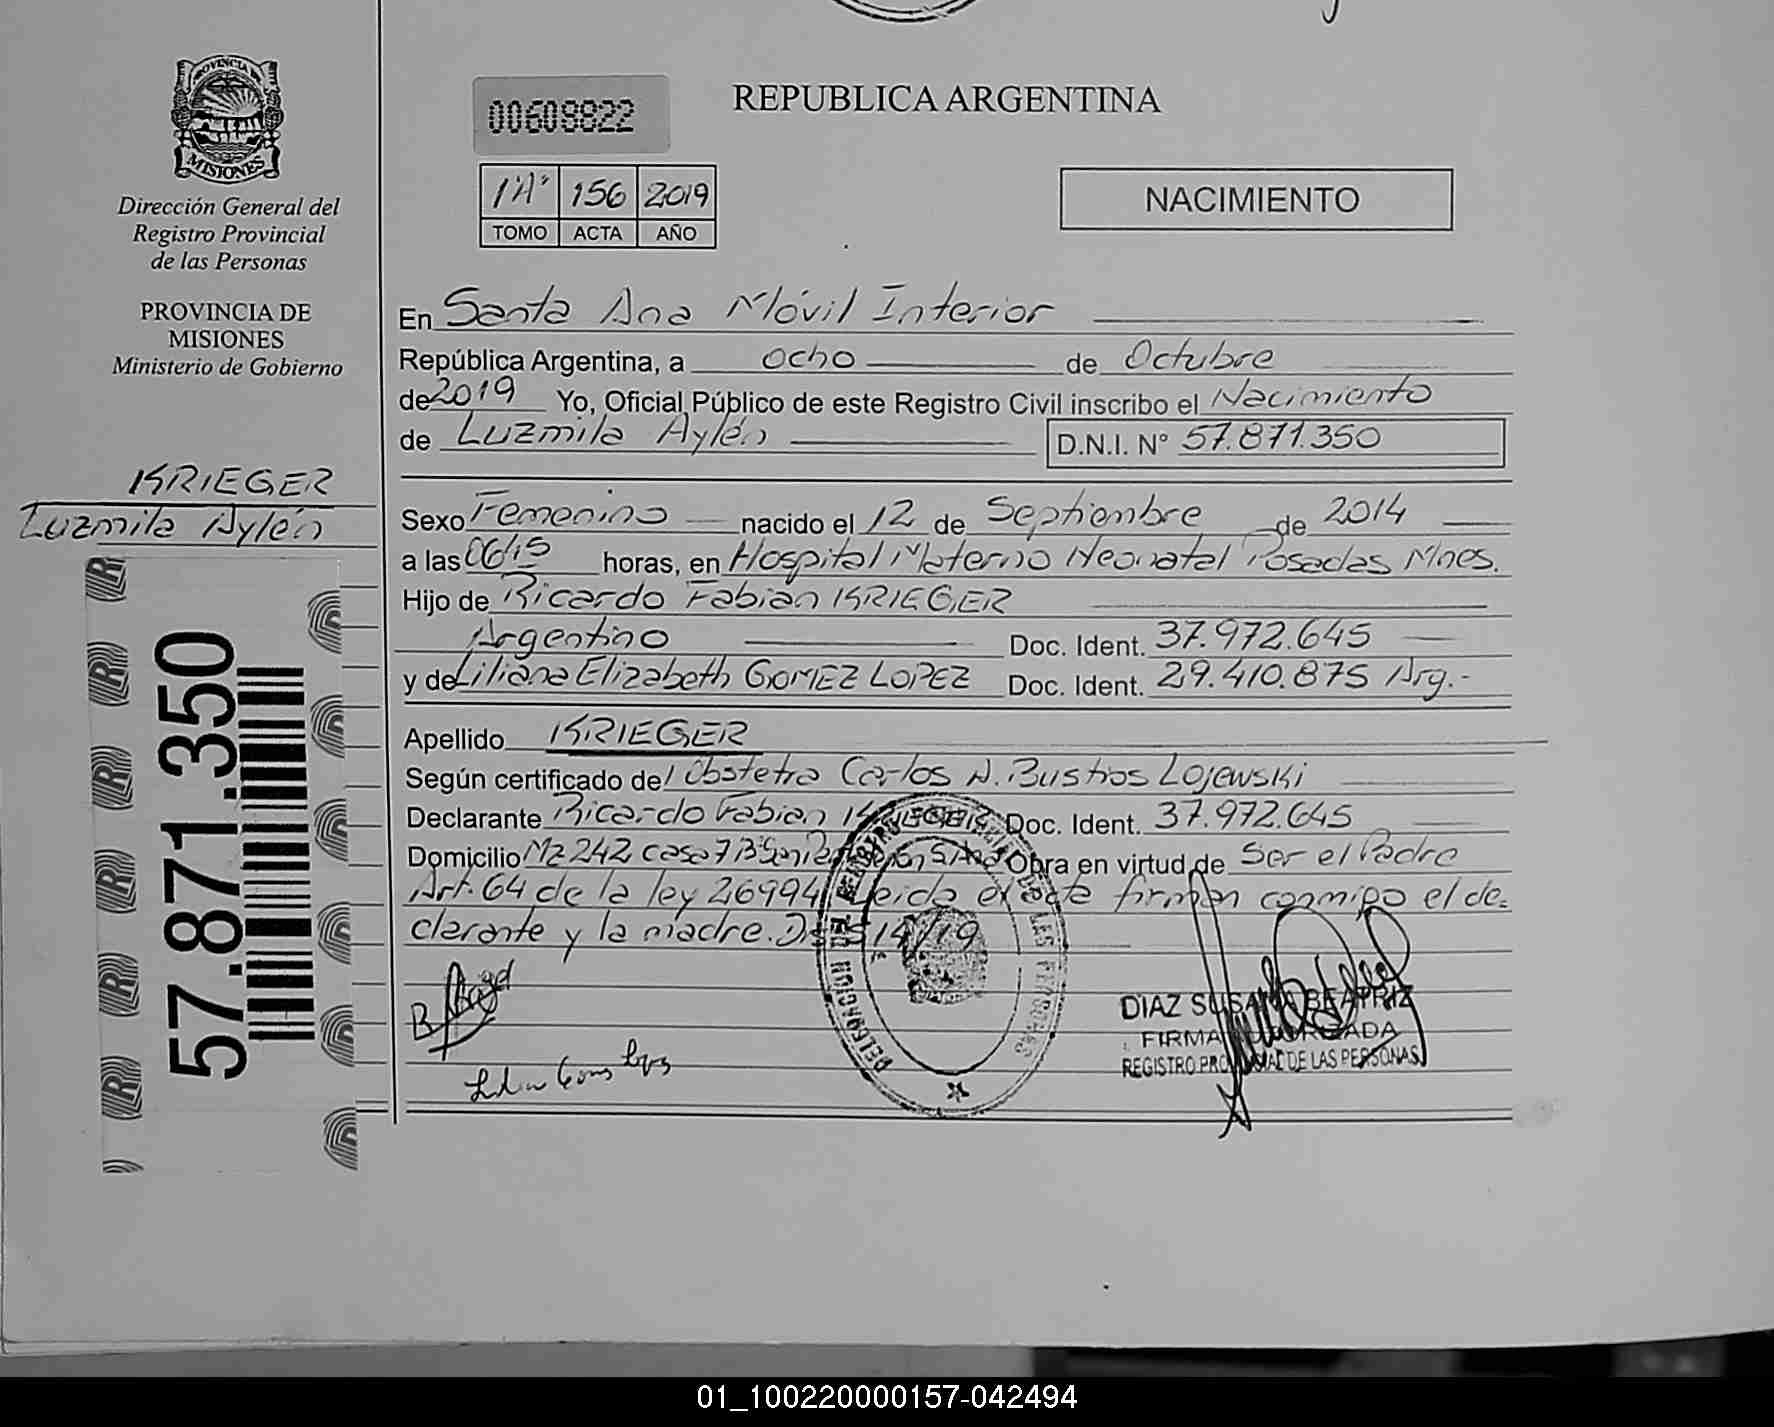 PROVINCIA DE
MISIONES
Dirección General del
Registro Provincial
de las Personas
PROVINCIA DE
MISIONES
Ministerio de Gobierno
KRIEGER
Luzmila Aylén
57.871.350
00608822
REPUBLICA ARGENTINA
1"A" 156 2019
TOMO ACTA AÑO
NACIMIENTO
En Santa Ana Móvil Interior
República Argentina, a ocho de Octubre
de 2019 Yo, Oficial Público de este Registro Civil inscribo el Nacimiento
de Luzmila Aylén D.N.I. N° 57.871.350
Sexo Femenino nacido el 12 de Septiembre de 2014
a las 0615 horas, en Hospital Materno Neonatal Posadas Mnes.
Hijo de Ricardo Fabian KRIEGER
Argentino Doc. Ident. 37.972.645
y de Liliana Elizabeth GOMEZ LOPEZ Doc. Ident. 29.410.875 Arg.-
Apellido KRIEGER
Según certificado del Obstetra Carlos A. Bustios Lojewski
Declarante Ricardo Fabian KRIEGER Doc. Ident. 37.972.645
Domicilio Mz 242 casa 7 B° Obra en virtud de Ser el Padre
Art. 64 de la ley 26994 Leida el acta firman conmigo el de=
clarante y la madre. 14/19
DIAZ SUSANA BEATRIZ
FIRMA AUTORIZADA
REGISTRO PROVINCIAL DE LAS PERSONAS
01_100220000157-042494